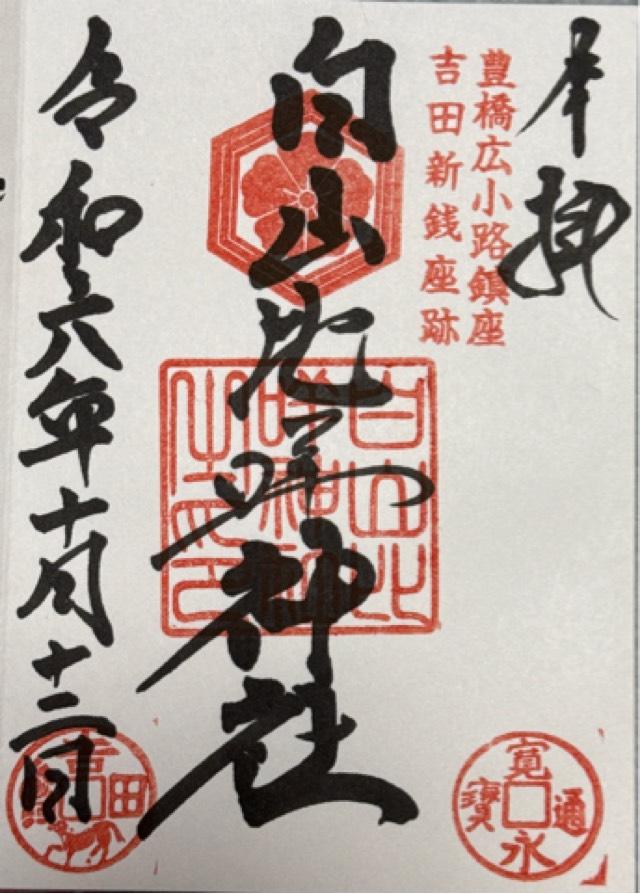 奉拝
豊橋広小路鎮座
吉田新銭座跡
白山比咩神社
白山比
咩神社
之印
令和六年十月十二日
寛永通寳
吉田